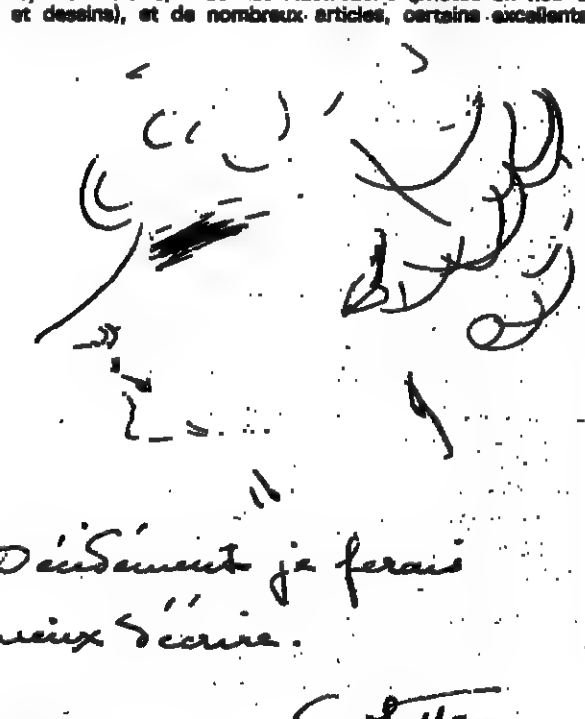 et dessins), et de nombreux articles, certains excellents
Décidément je ferais
mieux d'écrire.